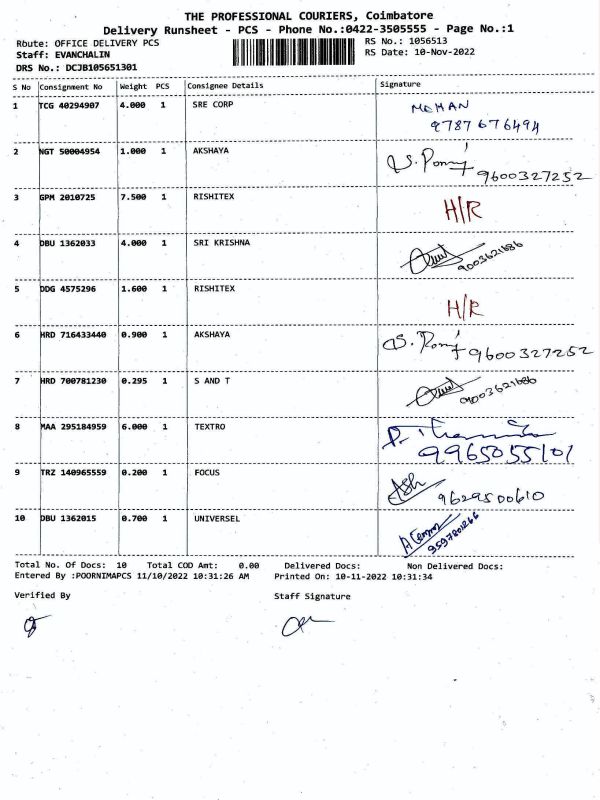 THE PROFESSIONAL COURIERS, Coimbatore
Delivery Runsheet - PCS - Phone No.:0422-3505555 - Page No.:1
Route: OFFICE DELIVERY PCS RS No.: 1056513
Staff: EVANCHALIN RS Date: 10-Nov-2022
DRS No.: DCJB105651301
S No Consignment No Weight PCS Consignee Details Signature
1 TCG 40294907 4.000 1 SRE CORP MOHAN
9787676494
2 NGT 50004954 1.000 1 AKSHAYA 9600327252
3 GPM 2010725 7.500 1 RISHITEX H/R
4 DBU 1362033 4.000 1 SRI KRISHNA 9003621686
5 DDG 4575296 1.600 1 RISHITEX H/R
6 HRD 716433440 0.900 1 AKSHAYA 9600327252
7 HRD 700781230 0.295 1 S AND T 9003621686
8 MAA 295184959 6.000 1 TEXTRO
9965055101
9 TRZ 140965559 0.200 1 FOCUS 9629500610
10 DBU 1362015 0.700 1 UNIVERSEL
Total No. Of Docs: 10 Total COD Amt: 0.00 Delivered Docs: Non Delivered Docs:
Entered By :POORNIMAPCS 11/10/2022 10:31:26 AM Printed On: 10-11-2022 10:31:34
Verified By Staff Signature